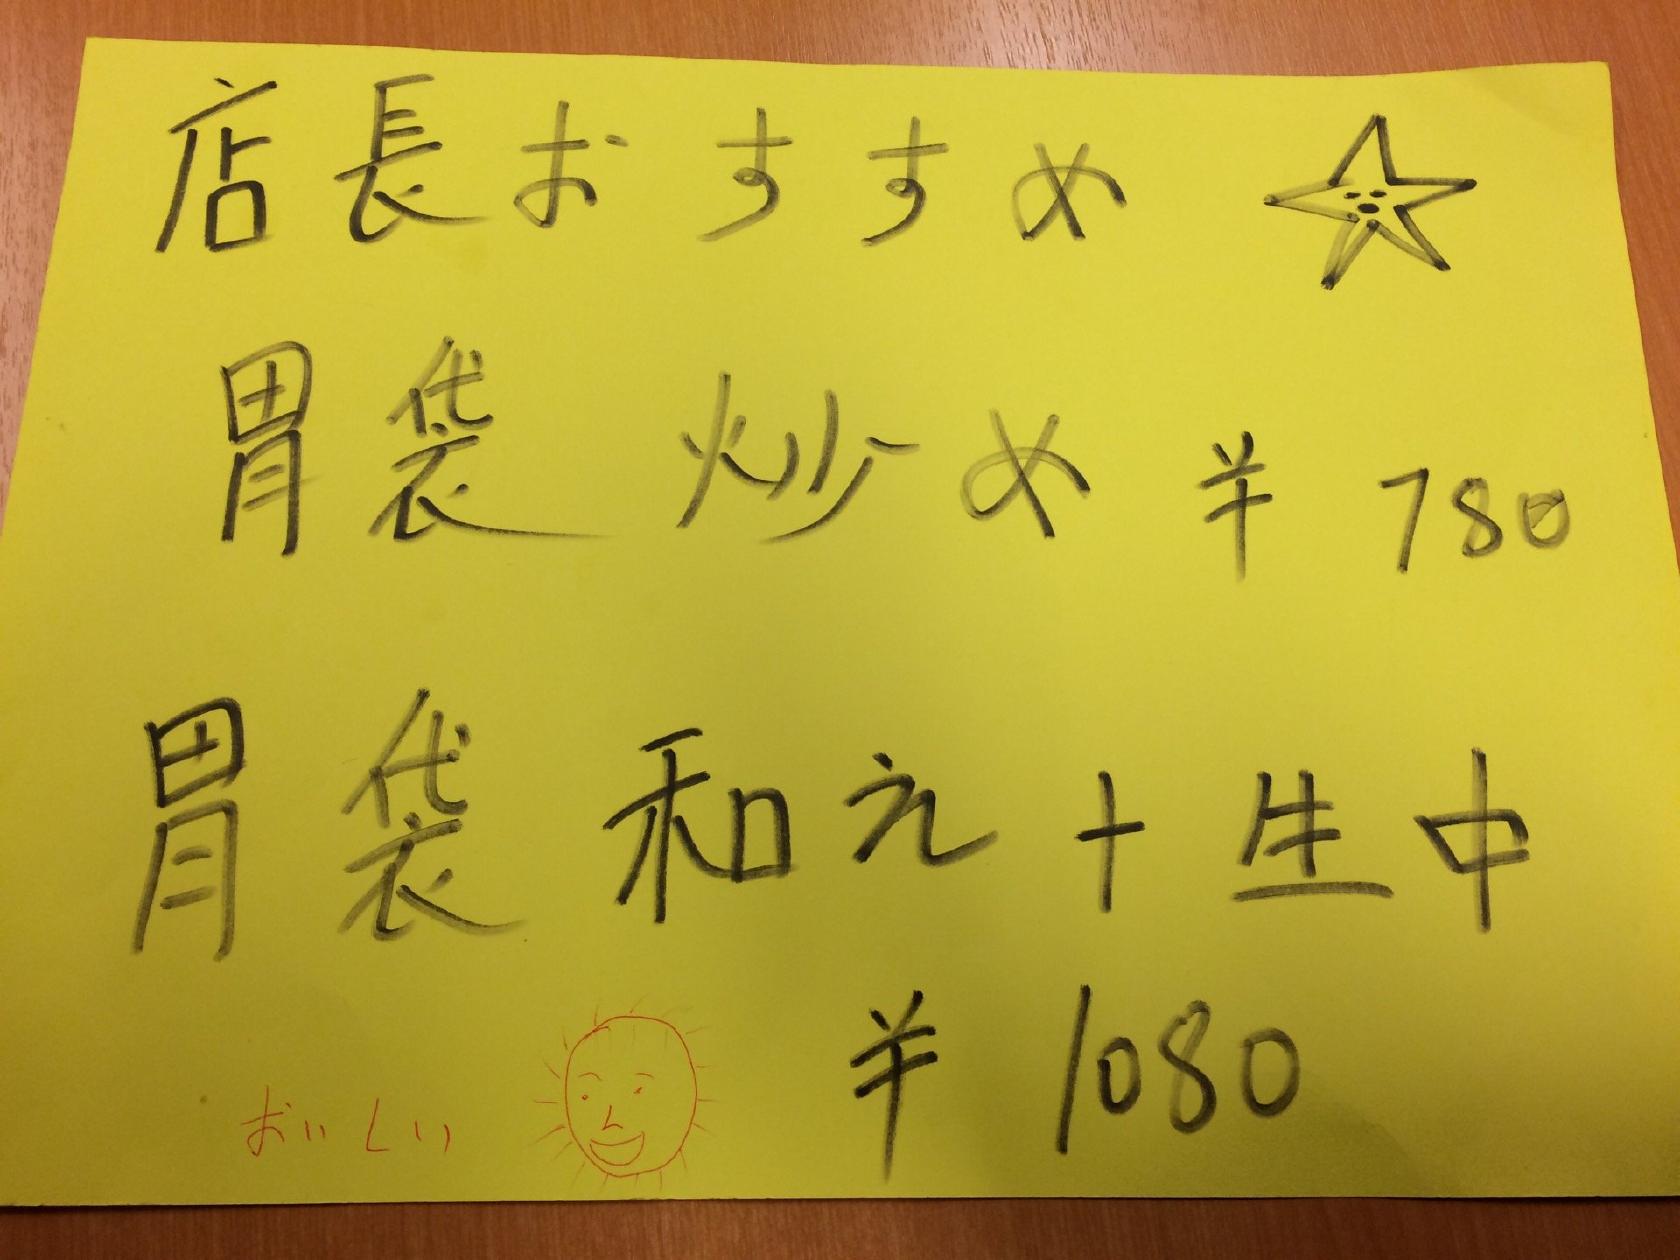 店長おすすめ
胃袋炒め ¥780
胃袋和え+生中
¥1080
おいしい